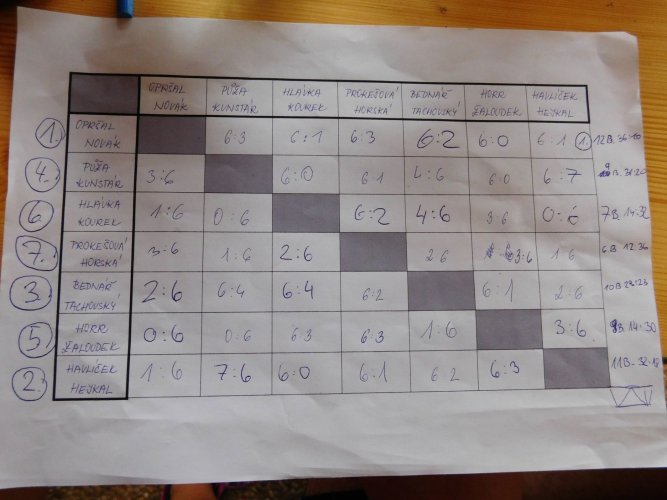 OPRŠAL NOVÁK PŮŽA KUNSTÁR HLÁVKA KOUREK PROKEŠOVÁ HORSKÁ BEDNÁŘ TACHOVSKÝ HORR ŽALOUDEK HAVLÍČEK HEJKAL
1. OPRŠAL NOVÁK 6:3 6:1 6:3 6:2 6:0 6:1 1. 12B. 36:10
4. PŮŽA KUNSTÁR 3:6 6:0 6:1 4:6 6:0 6:7 31:20
6. HLÁVKA KOUREK 1:6 0:6 6:2 4:6 3:6 0:6 7B. 14:32
7. PROKEŠOVÁ HORSKÁ 3:6 1:6 2:6 2:6 3:6 1:6 6.B 12:36
3. BEDNÁŘ TACHOVSKÝ 2:6 6:4 6:4 6:2 6:1 2:6 10B 28:23
5. HORR ŽALOUDEK 0:6 0:6 6:3 6:3 1:6 3:6 14:30
2. HAVLÍČEK HEJKAL 1:6 7:6 6:0 6:1 6:2 6:3 11B. 32:18